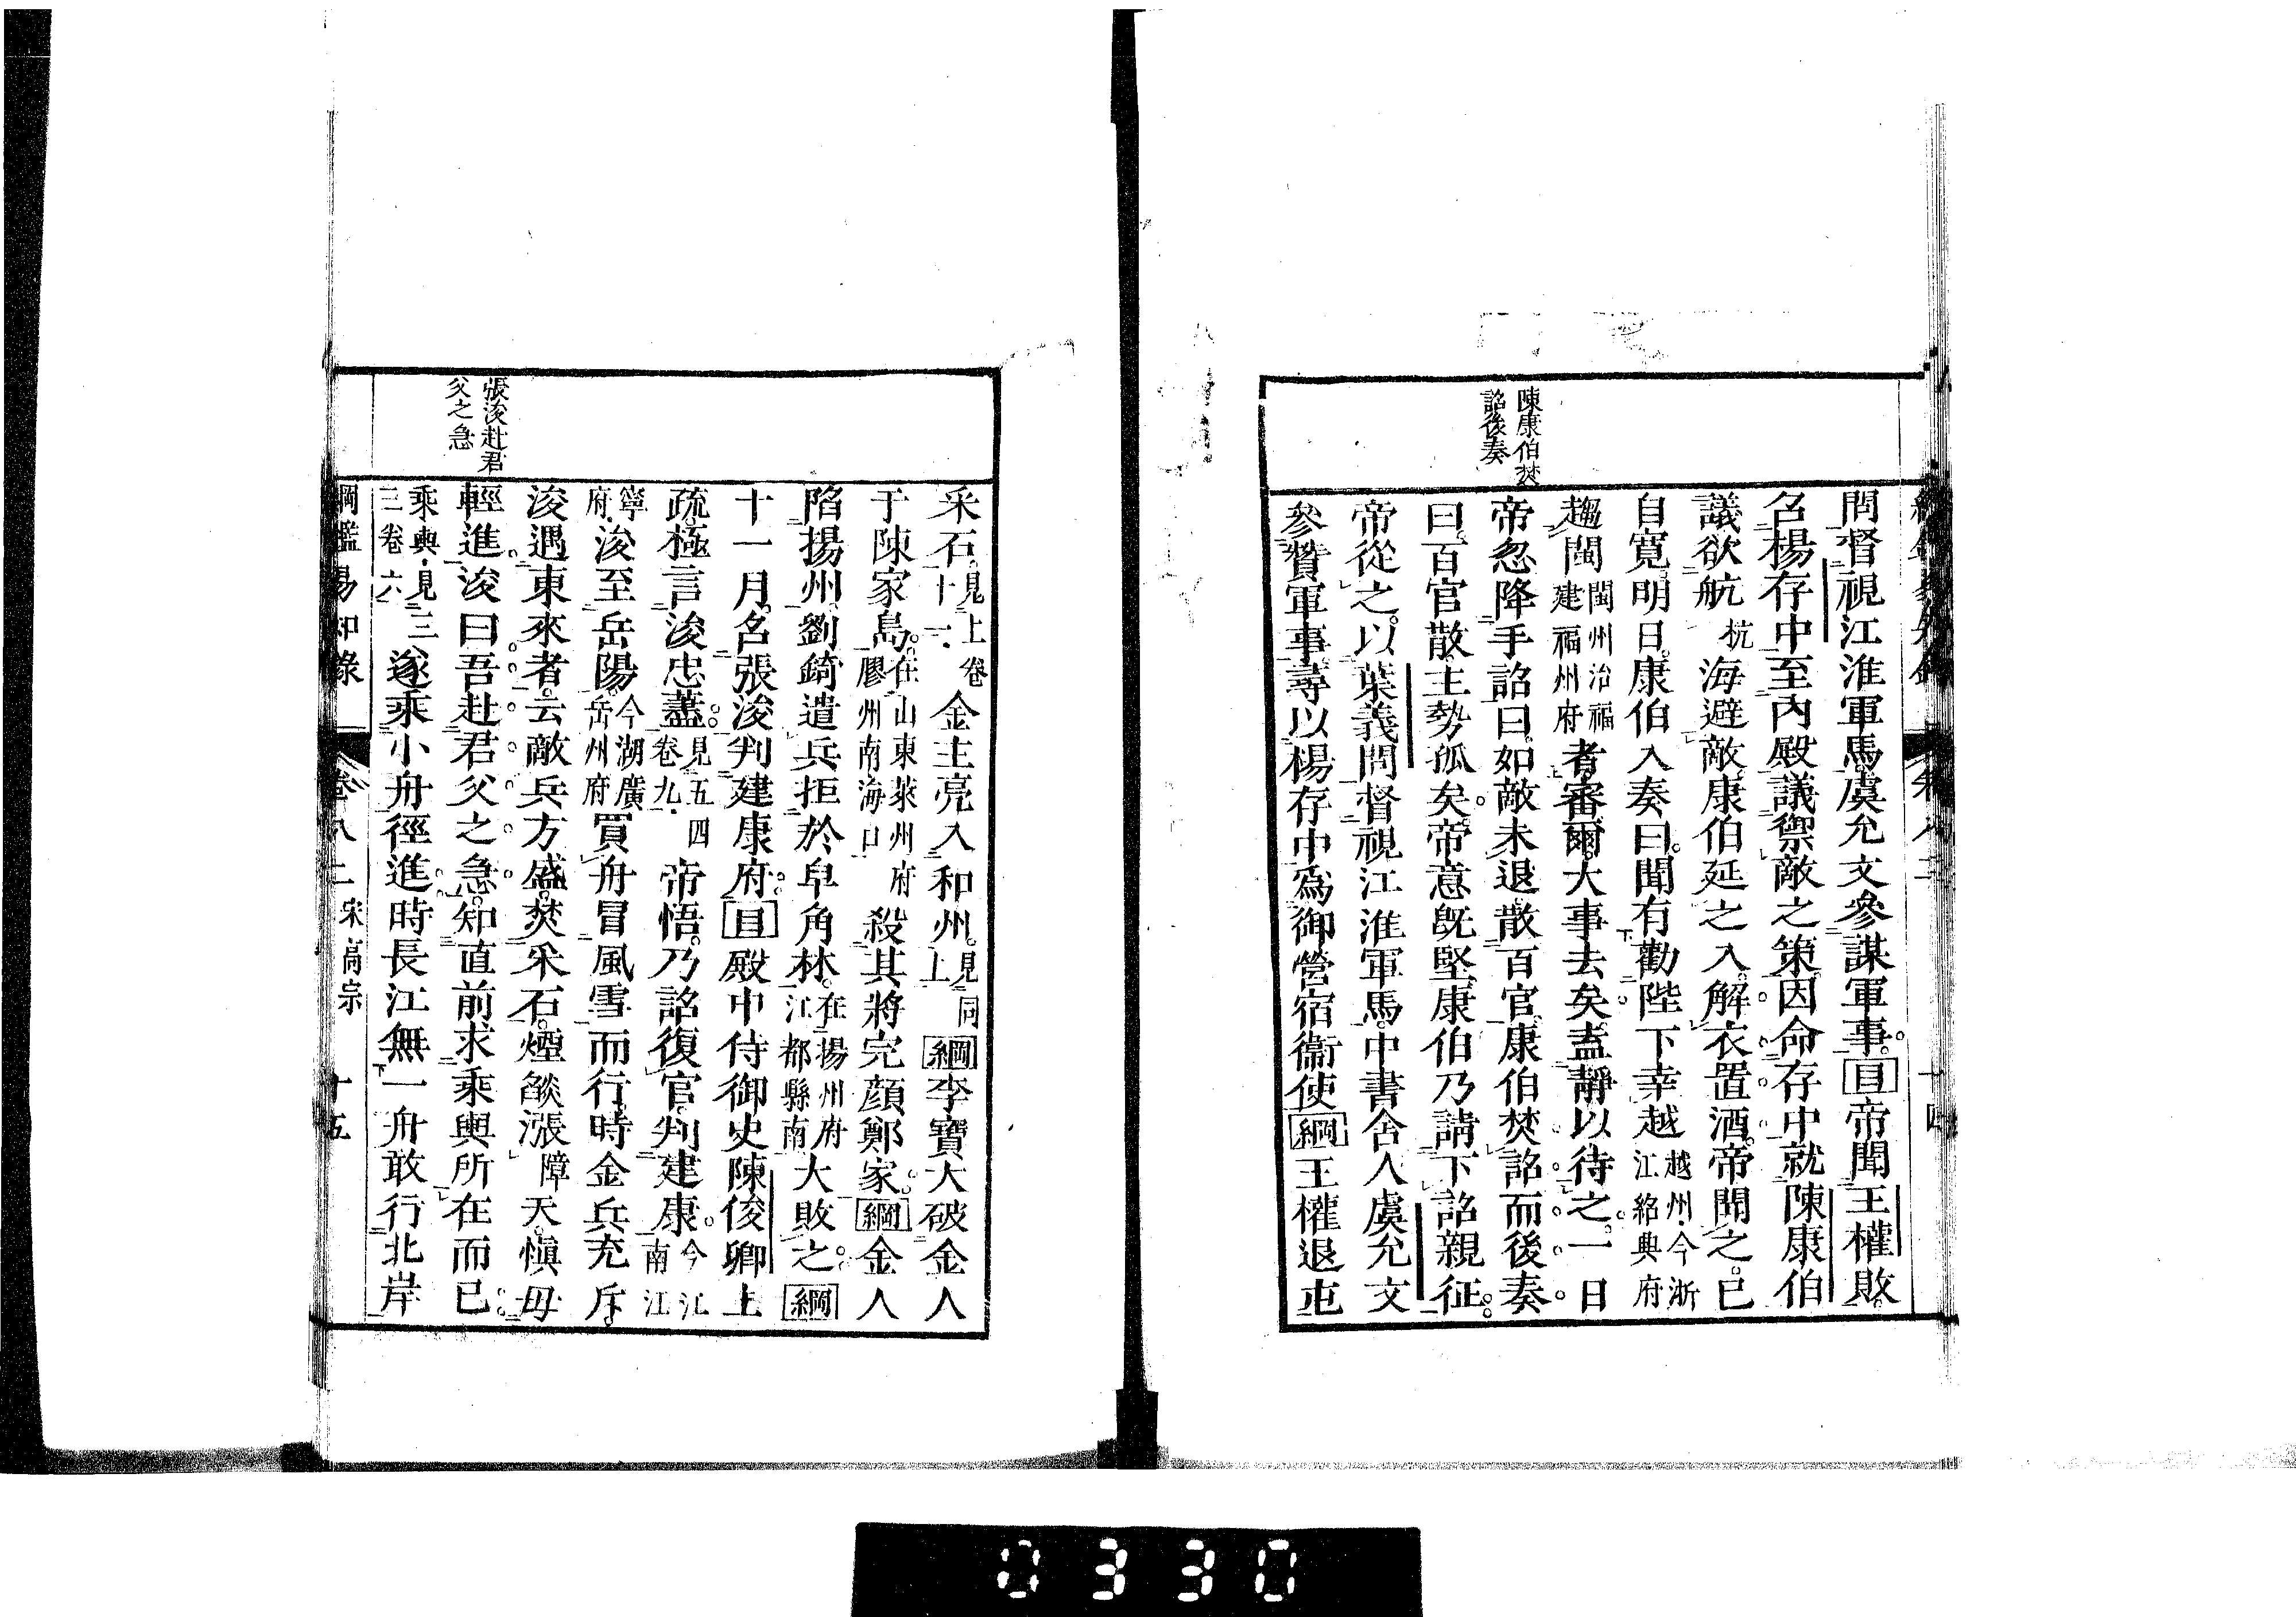 陳康伯焚
詔後奏
問督視江淮軍馬虞允文參謀軍事。目帝聞王權敗。
召楊存中至內殿議禦敵之策因命存中就陳康伯
議欲航杭海避敵康伯延之入解衣置酒帝聞之已
自寬明日康伯入奏曰聞有勸陛下幸越越州今浙江紹興府
趨閩閩州治福建福州府者審爾大事去矣盍靜以待之一日
帝忽降手詔曰如敵未退散百官康伯焚詔而後奏
曰百官散主勢孤矣帝意旣堅康伯乃請下詔親征
帝從之以葉義問督視江淮軍馬中書舍人虞允文
參贊軍事尋以楊存中爲御營宿衞使綱王權退屯
張浚赴君
父之急
采石見上卷十一金主亮入和州見同上綱李寶大破金人
于陳家島在山東萊州府膠州南海口殺其將完顏鄭家綱金人
陷揚州劉錡遣兵拒於皁角林在揚州府江都縣南大敗之綱
十一月召張浚判建康府目殿中侍御史陳俊卿上
疏極言浚忠藎見五四卷九帝悟乃詔復官判建康今江南江
寧府浚至岳陽今湖廣岳州府買舟冒風雪而行時金兵充斥
浚遇東來者云敵兵方盛焚采石煙燄漲障天愼毋
輕進浚曰吾赴君父之急知直前求乘輿所在而已
乘輿見三三卷六遂乘小舟徑進時長江無一舟敢行北岸
綱鑑易知錄 卷八二 宋高宗 十五
0330